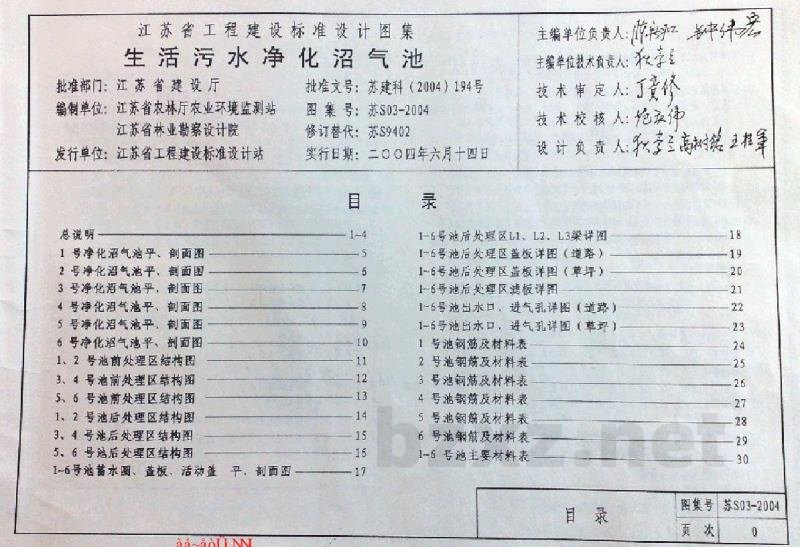 江苏省工程建设标准设计图集
生活污水净化沼气池
批准部门：江苏省建设厅
批准文号：苏建科（2004）194号
编制单位：江苏省农林厅农业环境监测站
图 集 号：苏S03-2004
江苏省林业勘察设计院
修订替代：苏S9402
发行单位：江苏省工程建设标准设计站
实行日期：二〇〇四年六月十四日
主编单位负责人：
主编单位技术负责人：
技 术 审 定 人：
技 术 校 核 人：
设 计 负 责 人：
目 录
总说明 1-4
1 号净化沼气池平、剖面图 5
2 号净化沼气池平、剖面图 6
3 号净化沼气池平、剖面图 7
4 号净化沼气池平、剖面图 8
5 号净化沼气池平、剖面图 9
6 号净化沼气池平、剖面图 10
1、2 号池前处理区结构图 11
3、4 号池前处理区结构图 12
5、6 号池前处理区结构图 13
1、2 号池后处理区结构图 14
3、4 号池后处理区结构图 15
5、6 号池后处理区结构图 16
1-6号池蓄水圈、盖板、活动盖 平、剖面图 17
1-6号池后处理区L1、L2、L3梁详图 18
1-6号池后处理区盖板详图（道路） 19
1-6号池后处理区盖板详图（草坪） 20
1-6号池后处理区滤板详图 21
1-6号池出水口、进气孔详图（道路） 22
1-6号池出水口、进气孔详图（草坪） 23
1 号池钢筋及材料表 24
2 号池钢筋及材料表 25
3 号池钢筋及材料表 26
4 号池钢筋及材料表 27
5 号池钢筋及材料表 28
6 号池钢筋及材料表 29
1-6 号池主要材料表 30
目 录
图集号 苏S03-2004
页 次 0